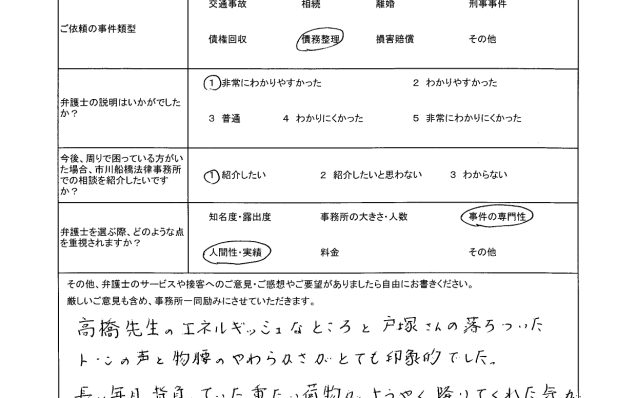 交通事故 相続 離婚 刑事事件
ご依頼の事件類型
債権回収 債務整理 損害賠償 その他
弁護士の説明はいかがでした
か？
1 非常にわかりやすかった 2 わかりやすかった
3 普通 4 わかりにくかった 5 非常にわかりにくかった
今後、周りで困っている方がい
た場合、市川船橋法律事務所
での相談を紹介したいです
か？
1 紹介したい 2 紹介したいと思わない 3 わからない
弁護士を選ぶ際、どのような点
を重視されますか？
知名度・露出度 事務所の大きさ・人数 事件の専門性
人間性・実績 料金 その他
その他、弁護士のサービスや接客へのご意見・ご感想やご要望がありましたら自由にお書きください。
厳しいご意見も含め、事務所一同励みにさせていただきます。
高橋先生のエネルギッシュなところと戸塚さんの落ちついた
トーンの声と物腰のやわらかさがとても印象的でした。
長い年月背負っていた重たい荷物がようやく降りてくれた気が